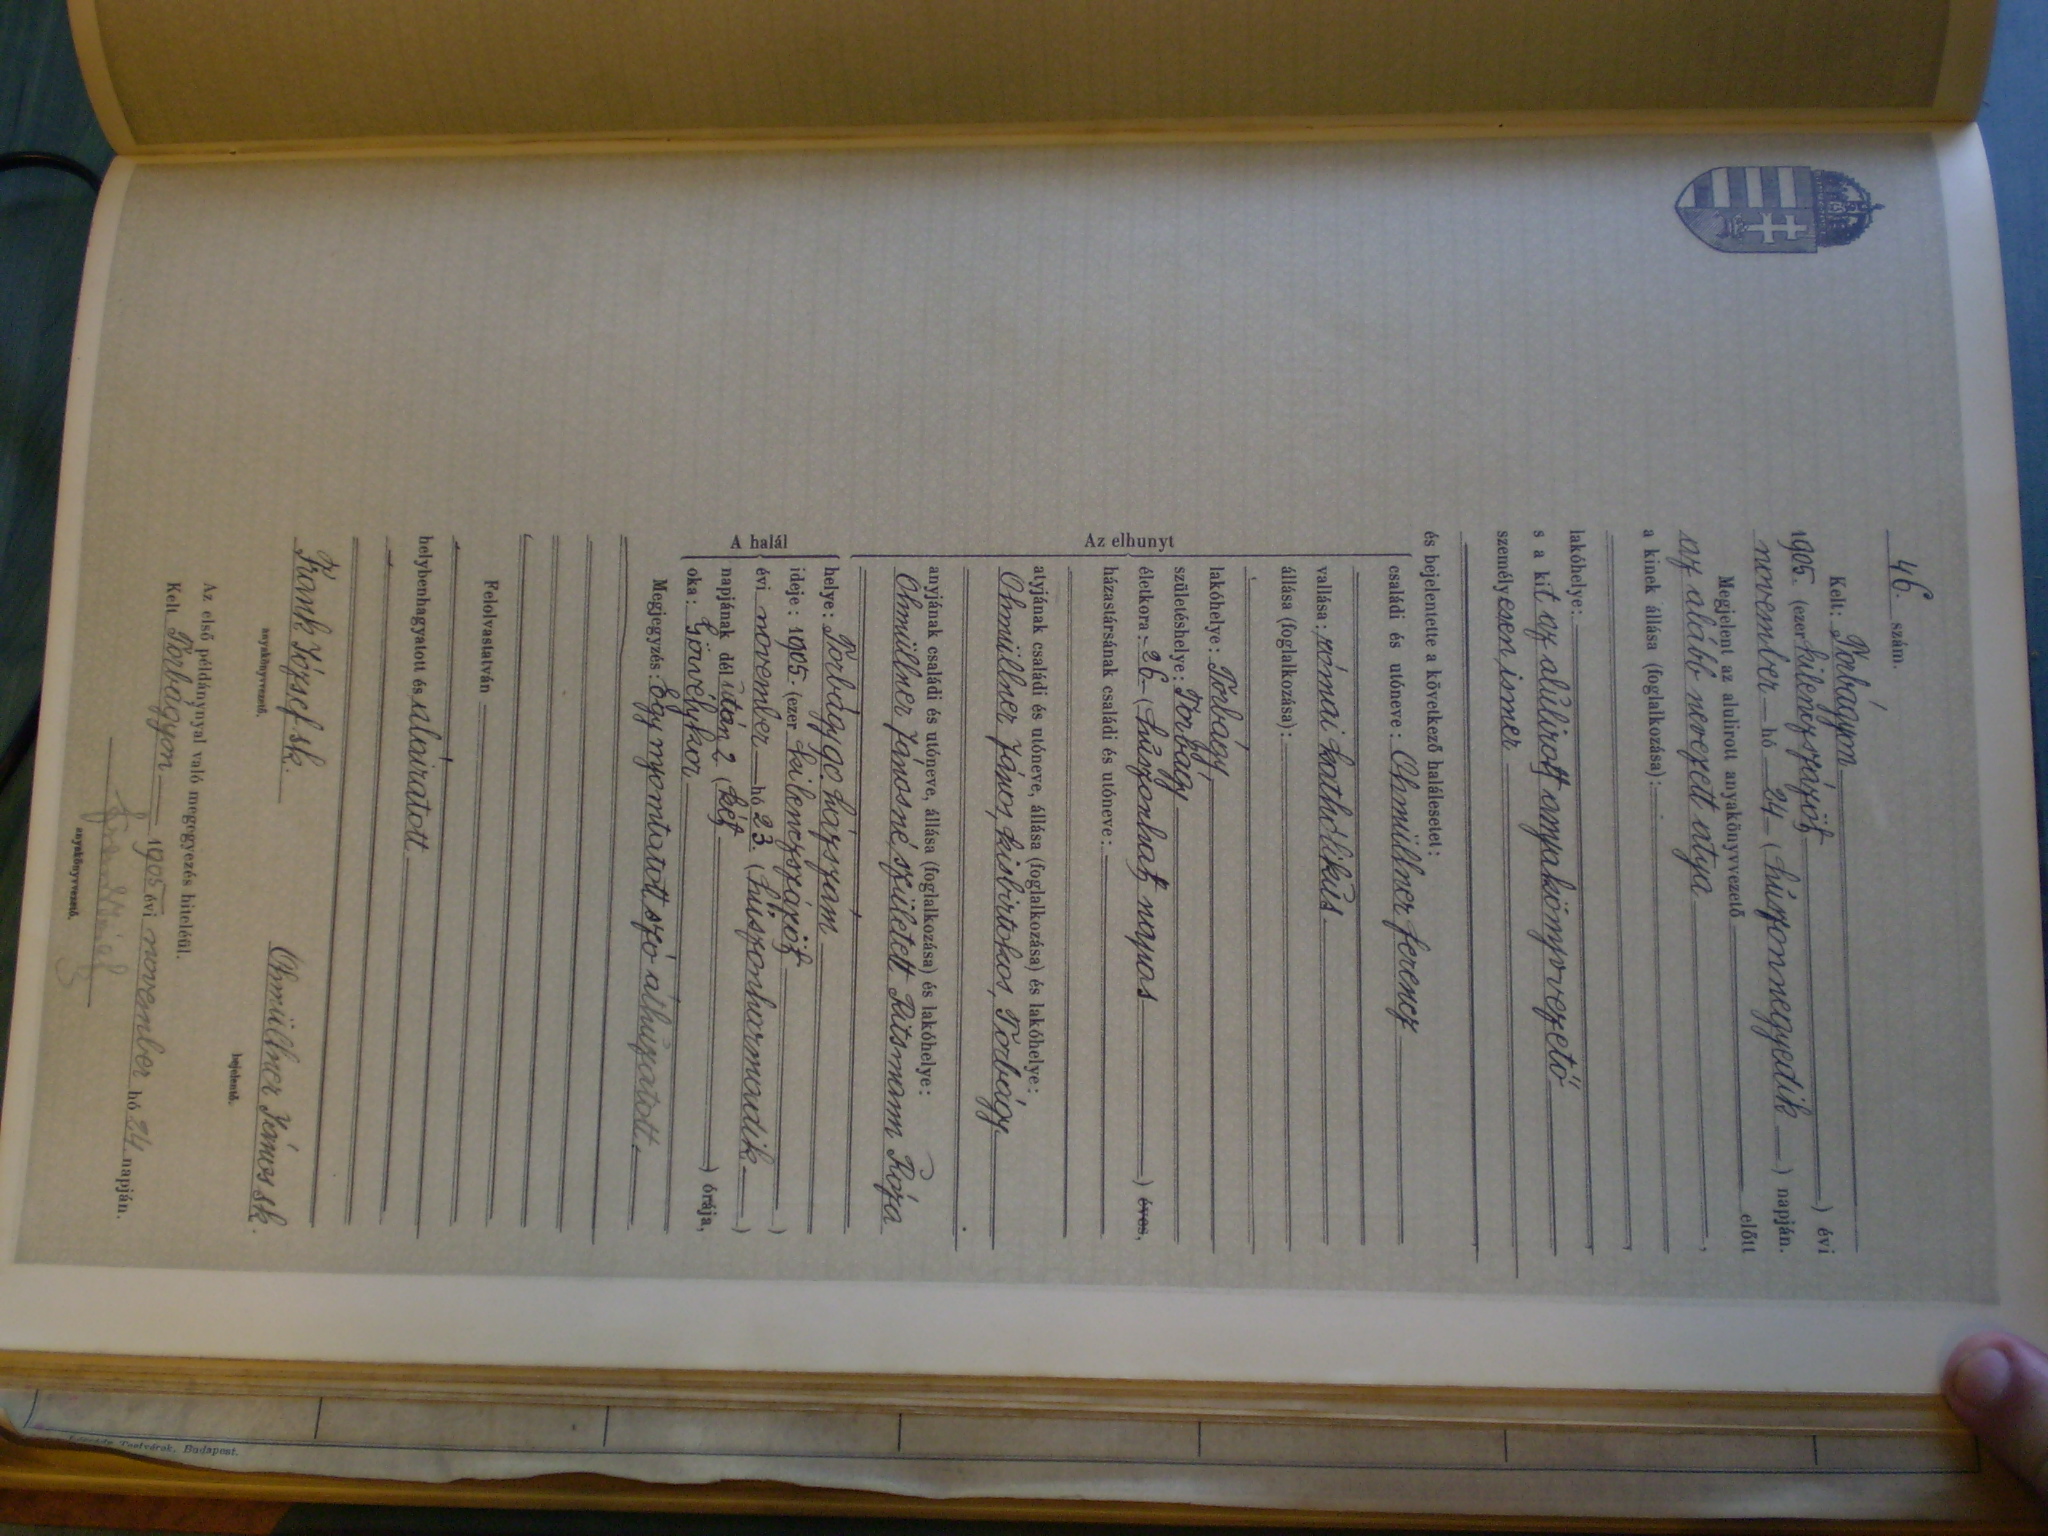 46. szám.
Kelt: Torbágyon
1905. (ezer kilenczszázöt) évi
november hó 24 (húszonnegyedik) napján.
Megjelent az alulirott anyakönyvvezető előtt
az alább nevezett atya,
a kinek állása (foglalkozása):
lakóhelye:
s a kit az alulirott anyakönyvvezető
személyesen ismer
és bejelentette a következő halálesetet:
Az elhunyt
családi és utóneve: Ohmüllner ferencz
vallása: római katholikus
állása (foglalkozása):
lakóhelye: Torbágy,
születéshelye: Torbágy
életkora: 26 (húszonhat) napos ) éves,
házastársának családi és utóneve:
atyjának családi és utóneve, állása (foglalkozása) és lakóhelye:
Ohmüllner János, kisbirtokos, Torbágy
anyjának családi és utóneve, állása (foglalkozása) és lakóhelye:
Ohmüllner Jánosné, született Ritsmann Róza
A halál
helye: Torbágy 90. házszám
ideje: 1905. (ezer kilenczszázöt)
évi november hó 23. (húszonharmadik)
napjának dél után 2 (két) órája,
oka: Görvélykor
Megjegyzés: Egy nyomtatott szó áthúzatott.
Felolvastatván
helybenhagyatott és aláiratott.
Frank József sk.
anyakönyvvezető.
Ohmüllner János sk.
bejelentő.
Az első példánynyal való megegyezés hiteléül.
Kelt Torbágyon 1905 évi november hó 24 napján.
anyakönyvvezető.
Budapest.